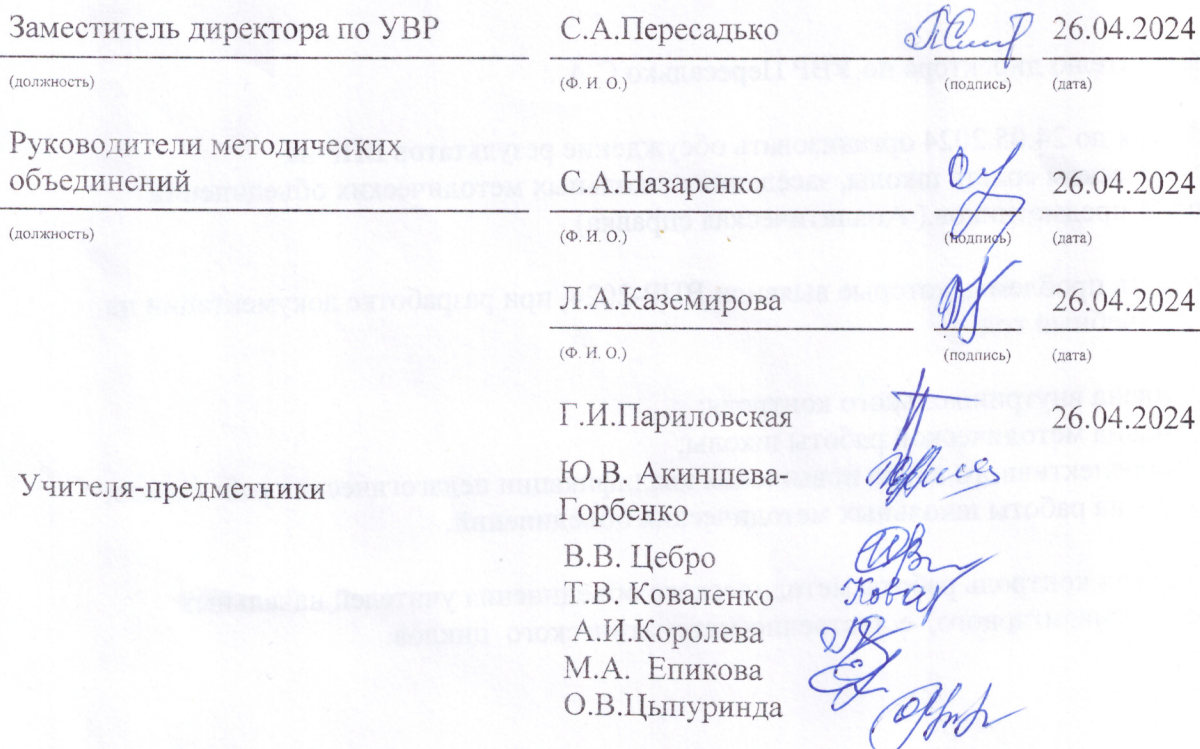 Заместитель директора по УВР С.А.Пересадько 26.04.2024
(должность) (Ф. И. О.) (подпись) (дата)
Руководители методических
объединений С.А.Назаренко 26.04.2024
(должность) (Ф. И. О.) (подпись) (дата)
Л.А.Каземирова 26.04.2024
(Ф. И. О.) (подпись) (дата)
Г.И.Париловская 26.04.2024
Учителя-предметники Ю.В. Акиншева-
Горбенко
В.В. Цебро
Т.В. Коваленко
А.И.Королева
М.А. Епикова
О.В.Цыпуринда